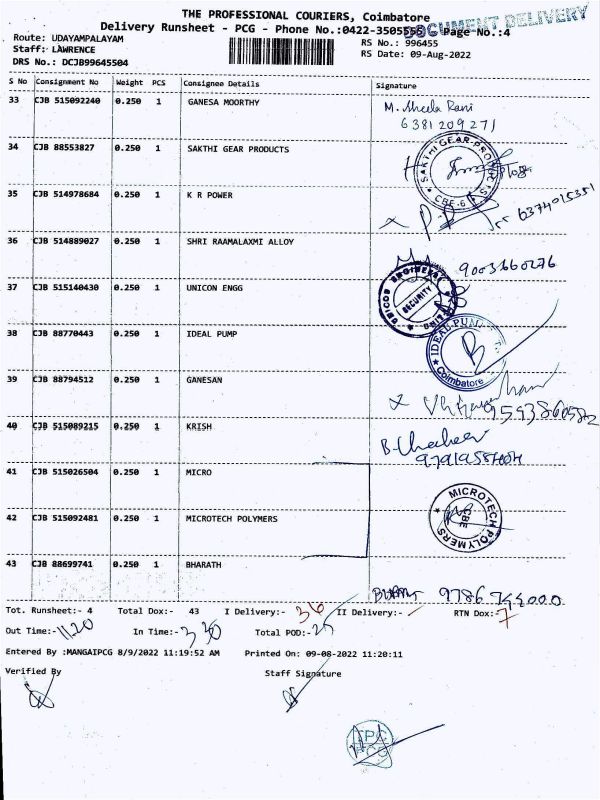 THE PROFESSIONAL COURIERS, Coimbatore
DOCUMENT DELIVERY
Delivery Runsheet - PCG - Phone No.:0422-3505556 Page No.:4
Route: UDAYAMPALAYAM
RS No.: 996455
Staff: LAWRENCE
RS Date: 09-Aug-2022
DRS No.: DCJB99645504
S No Consignment No Weight PCS Consignee Details Signature
33 CJB 515092240 0.250 1 GANESA MOORTHY M. Sheela Rani
6381209271
34 CJB 88553827 0.250 1 SAKTHI GEAR PRODUCTS
SAKTHI GEAR PRODUCTS
CBE-6
35 CJB 514978684 0.250 1 K R POWER
6374015351
36 CJB 514889027 0.250 1 SHRI RAAMALAXMI ALLOY
9003660276
37 CJB 515140430 0.250 1 UNICON ENGG
SECURITY
38 CJB 88770443 0.250 1 IDEAL PUMP
IDEAL PUMP
Coimbatore
39 CJB 88794512 0.250 1 GANESAN
40 CJB 515089215 0.250 1 KRISH
41 CJB 515026504 0.250 1 MICRO
42 CJB 515092481 0.250 1 MICROTECH POLYMERS
MICROTECH POLYMERS
CBE
43 CJB 88699741 0.250 1 BHARATH
Tot. Runsheet:- 4 Total Dox:- 43 I Delivery:- 36 II Delivery:- RTN Dox:- 7
Out Time:- 11.20 In Time:- 3 30 Total POD:-
Entered By :MANGAIPCG 8/9/2022 11:19:52 AM Printed On: 09-08-2022 11:20:11
Verified By Staff Signature
TPC
PCG